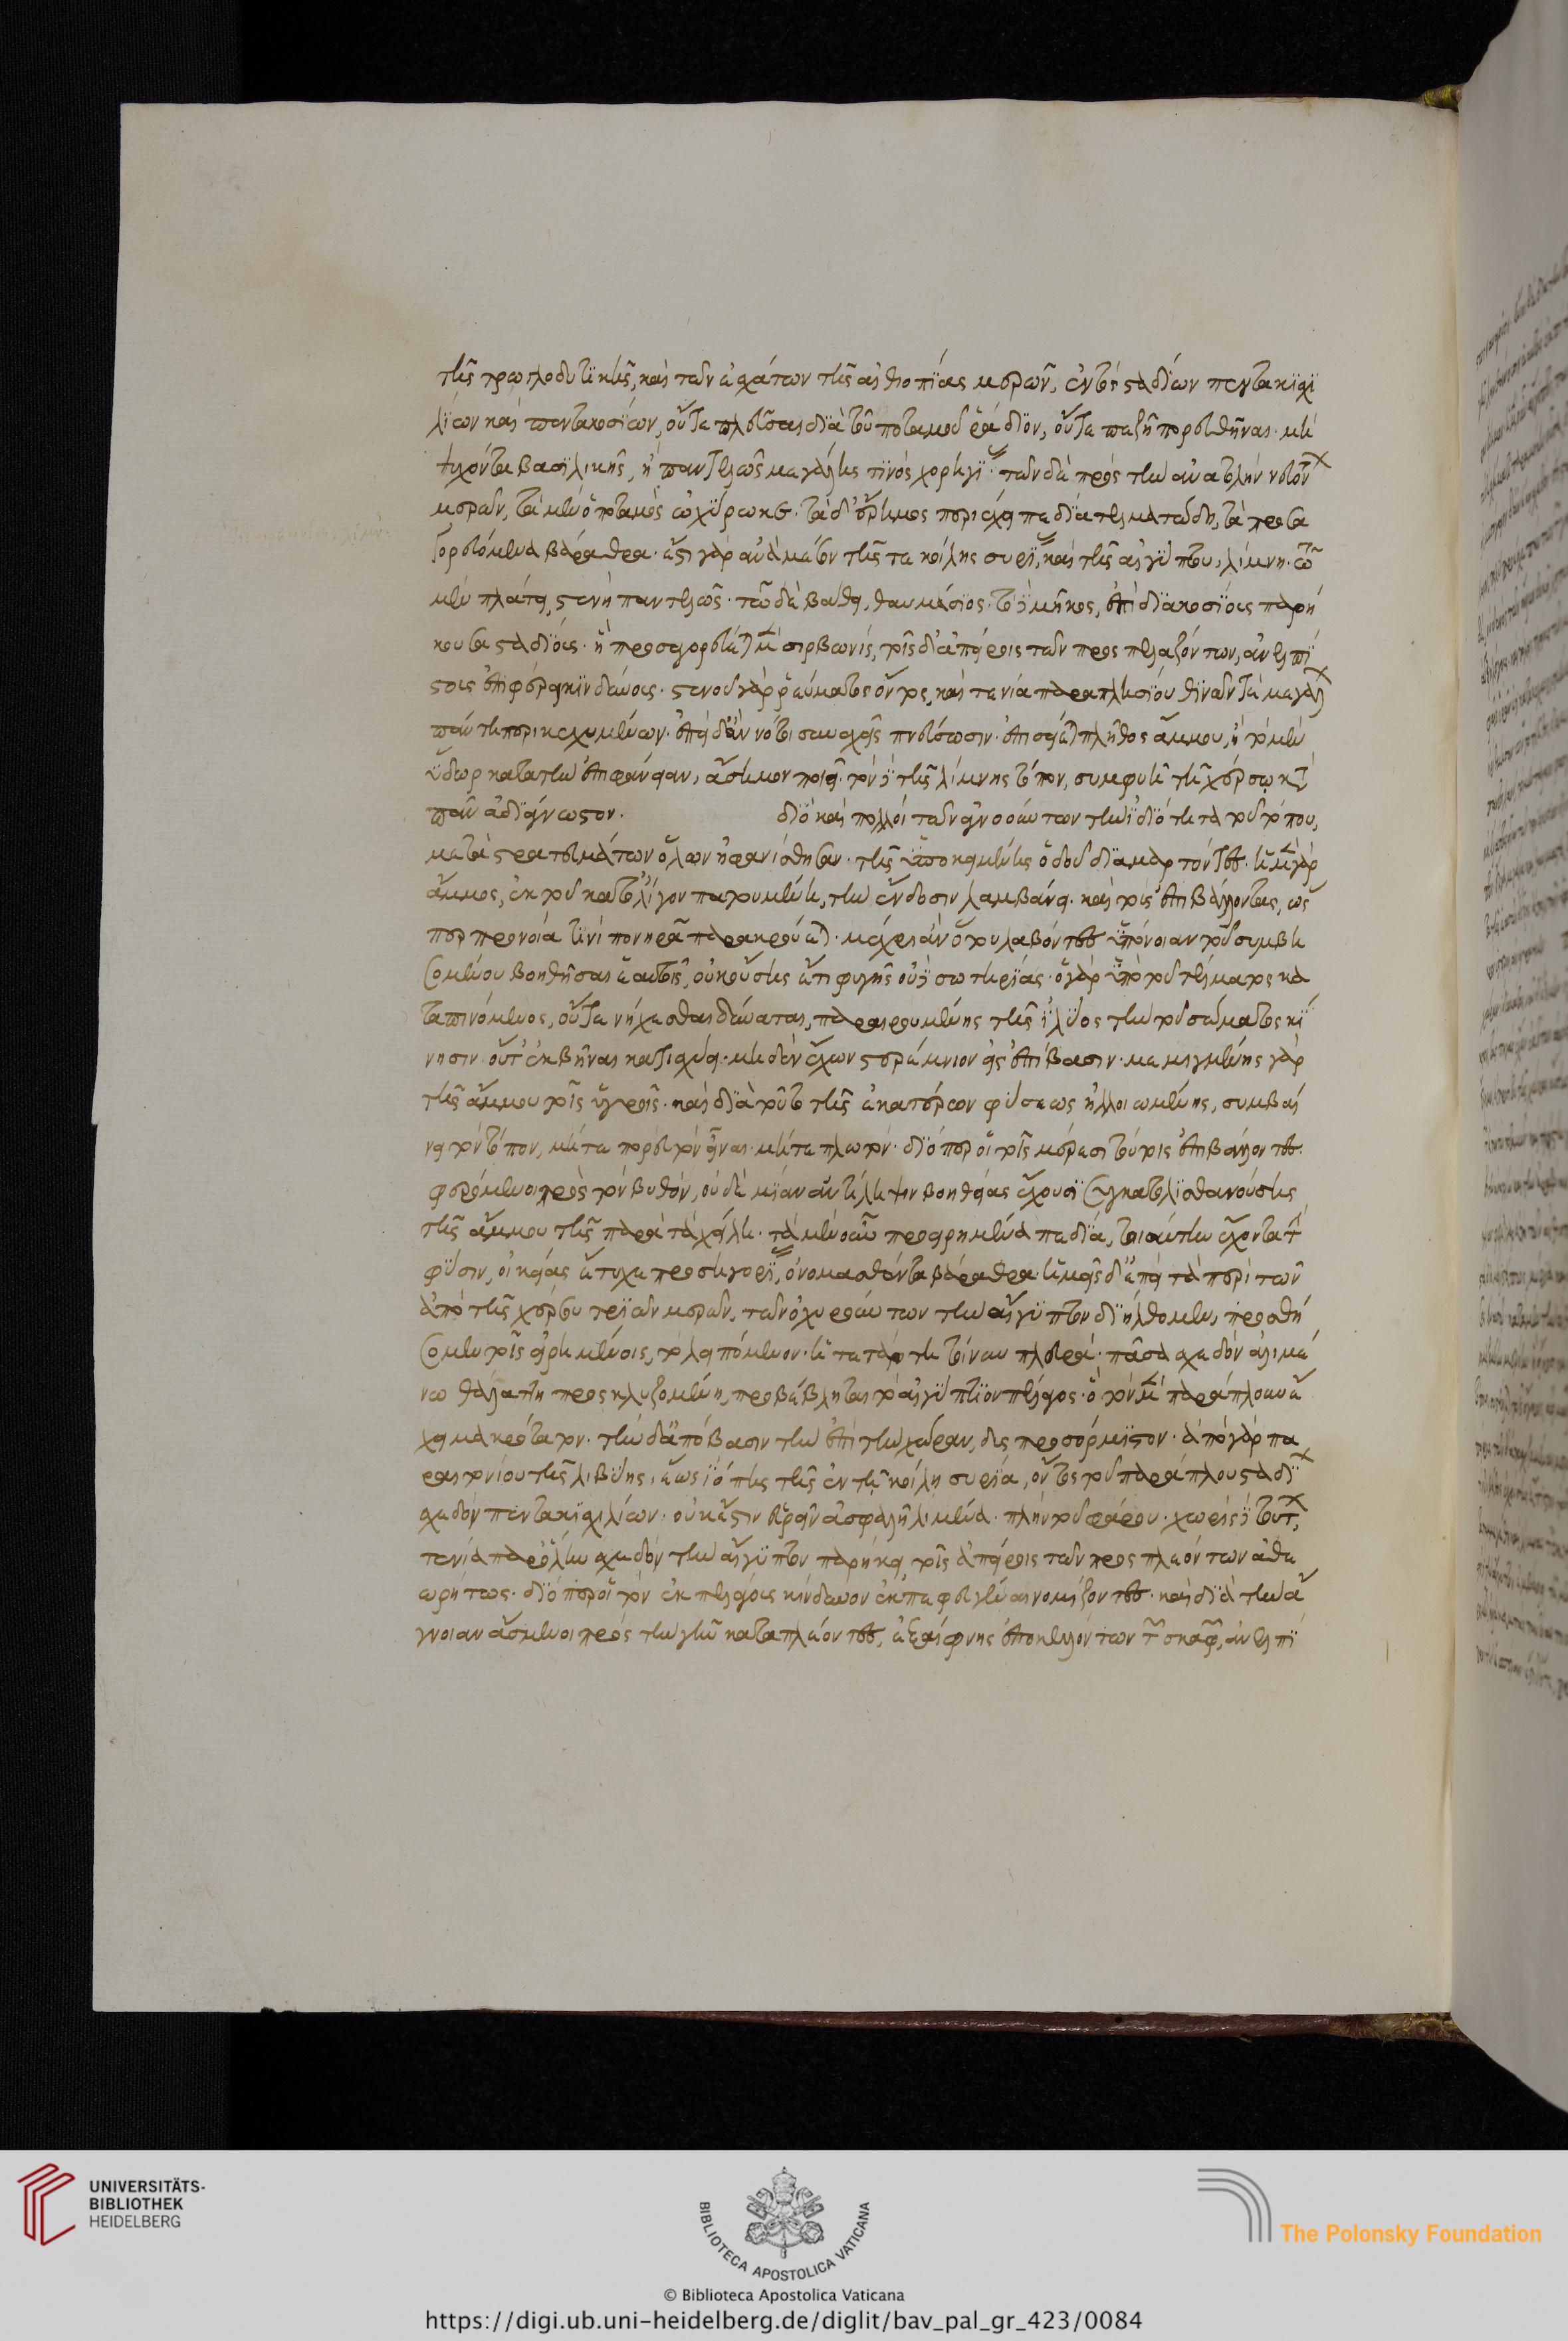 τῆς τρωγλοδυτϊκῆς, καὶ τῶν ἐσχάτων τῆς αἰθιοπΐας μερῶν, ἐντὸς σταδΐων πεντακϊσχϊ
λΐων καὶ πεντακοσΐων, οὔτε πλεῦσαι διὰ τοῦ ποταμοῦ ῥάδϊον, οὔτε πεζῆ πορευθῆναι. μὴ
τυχόντα βασϊλικῆς, ἢ παντελῶς μεγάλης τϊνὸς χορηγΐας. τῶν δὲ πρὸς τὴν ἀνατολὴν νευόντων
μερῶν, τὰ μὲν ὁ ποταμὸς ὠχύρωκε. τὰ δ' ἔρημος περιέχει πεδΐα τελματώδη, τὰ προσα
γορευόμενα βάραθρα. ἔστι γὰρ ἀνὰ μέσον τῆς τε κοίλης συρΐας, καὶ τῆς αἰγύπτου, λίμνη. τῶ
μὲν πλάτει, στενὴ παντελῶς. τῶ δὲ βάθει, θαυμάσϊος. τὸ δὲ μῆκος, ἐπὶ διακοσΐους παρή
κουσα σταδΐους. ἣ προσαγορεύεται μὲν σερβωνὶς, τοῖς δ' ἀπείροις τῶν προσπελαζόντων, ἀνελπΐ
στους ἐπιφέρει κινδύνους. στενοῦ γὰρ ῥεύματος ὄντος, καὶ τενία παραπλησΐου θϊνῶν τε μεγάλων
πάντη περικεχυμένων. ἐπειδὰν νότοι συνεχεῖς πνεύσωσιν. ἐπισείεται πλῆθος ἄμμου, ἣ τὸ μὲν
ὕδωρ κατὰ τὴν ἐπιφάνειαν, ἄσημον ποιεῖ. τὸν δὲ τῆς λίμνης τόπον, συμφυῆ τῆ χέρσω κατὰ
πᾶν ἀδϊάγνωστον. δϊὸ καὶ πολλοὶ τῶν ἀγνοούντων τὴν ἰδϊότητα τοῦ τόπου,
μετὰ στρατευμάτων ὅλων ἠφανίσθησαν. τῆς ὑποκειμένης ὁδοῦ διαμαρτόντες. ἡ μὲν γὰρ
ἄμμος, ἐκ τοῦ κατολίγον πατουμένη, τὴν ἔνδοσιν λαμβάνει. καὶ τοὺς ἐπιβάλλοντας, ὡς
περ προνοία τϊνὶ πονηρᾶ παρακρούεται. μέχρι ἂν ὅτου λαβόντες ὑπόνοιαν τοῦ συμβη
σομένου βοηθῆσαι ἑαυτοῖς, οὐκ οὔσης ἔτι φυγῆς οὐδὲ σωτηρΐας. ὁ γὰρ ὑπὸ τοῦ τέλματος κα
ταπινόμενος, οὔτε νήχεσθαι δύναται, παραιρουμένης τῆς ἰλύος τὴν τοῦ σώματος κΐ
νησιν. οὔτ' ἐκβῆναι κατισχύει. μηδὲν ἔχων στερέμνιον εἰς ἐπίβασιν. μεμιγμένης γὰρ
τῆς ἄμμου τοῖς ὑγροῖς. καὶ διὰ τοῦτο τῆς ἑκατέρων φύσεως ἠλλοιωμένης, συμβαί
νει τὸν τόπον, μήτε πορευτὸν εἶναι. μήτε πλωτόν. διόπερ οἱ τοῖς μέρεσι τούτοις ἐπιβάλλοντες.
φερόμενοι πρὸς τὸν βυθὸν, οὐδὲ μΐαν ἀντίληψιν βοηθείας ἔχουσϊ συγκατολϊσθανούσης
τῆς ἄμμου τῆς παρὰ τὰ χείλη. τὰ μὲν οὖν προειρημένα πεδΐα, τοιαύτην ἔχοντα τὴν
φύσιν, οἰκείας ἔτυχε προσηγορΐας, ὀνομασθέντα βάραθρα. ἡμεῖς δ' ἐπεὶ τὰ περὶ τῶν
ἀπὸ τῆς χέρσου τρϊῶν μερῶν, τῶν ὀχυρούντων τὴν αἴγυπτον διήλθομεν, προσθή
σομεν τοῖς εἰρημένοις, τὸ λειπόμενον. ἡ τετάρτη τοίνυν πλευρὰ. πᾶσα σχεδὸν ἀλιμέ
νω θαλάττη προσκλυζομένη, προβέβληται τὸ αἰγύπτϊον πέλαγος. ὃ τὸν μὲν παράπλουν ἔ
χει μακρότατον. τὴν δ' ἀπόβασιν τὴν ἐπὶ τὴν χώραν, δυσπροσόρμϊστον. ἀπὸ γὰρ πα
ραιτονίου τῆς λιβύης, ἕως ἰόπης τῆς ἐν τῆ κοίλη συρΐα, ὄντος τοῦ παράπλου σταδΐων
σχεδὸν πεντακισχιλίων. οὐκ ἔστιν εὑρεῖν ἀσφαλῆ λιμένα. πλὴν τοῦ φάρου. χωρὶς δὲ τούτων,
τενία παρ' ὅλην σχεδὸν τὴν αἴγυπτον παρήκει, τοῖς ἀπείροις τῶν προσπλεόντων ἀθε
ώρητος. δϊόπερ οἱ τὸν ἐκ πελάγους κίνδυνον ἐκπεφευγέναι νομίζοντες. καὶ διὰ τὴν ἄ
γνοιαν ἄσμενοι πρὸς τὴν γῆν καταπλέοντες, ἐξαίφνης ἐποκελλόντων τῶν σκαφῶν, ἀνελπΐ
UNIVERSITÄTS-
BIBLIOTHEK
HEIDELBERG
BIBLIOTECA APOSTOLICA VATICANA
The Polonsky Foundation
© Biblioteca Apostolica Vaticana
https://digi.ub.uni-heidelberg.de/diglit/bav_pal_gr_423/0084